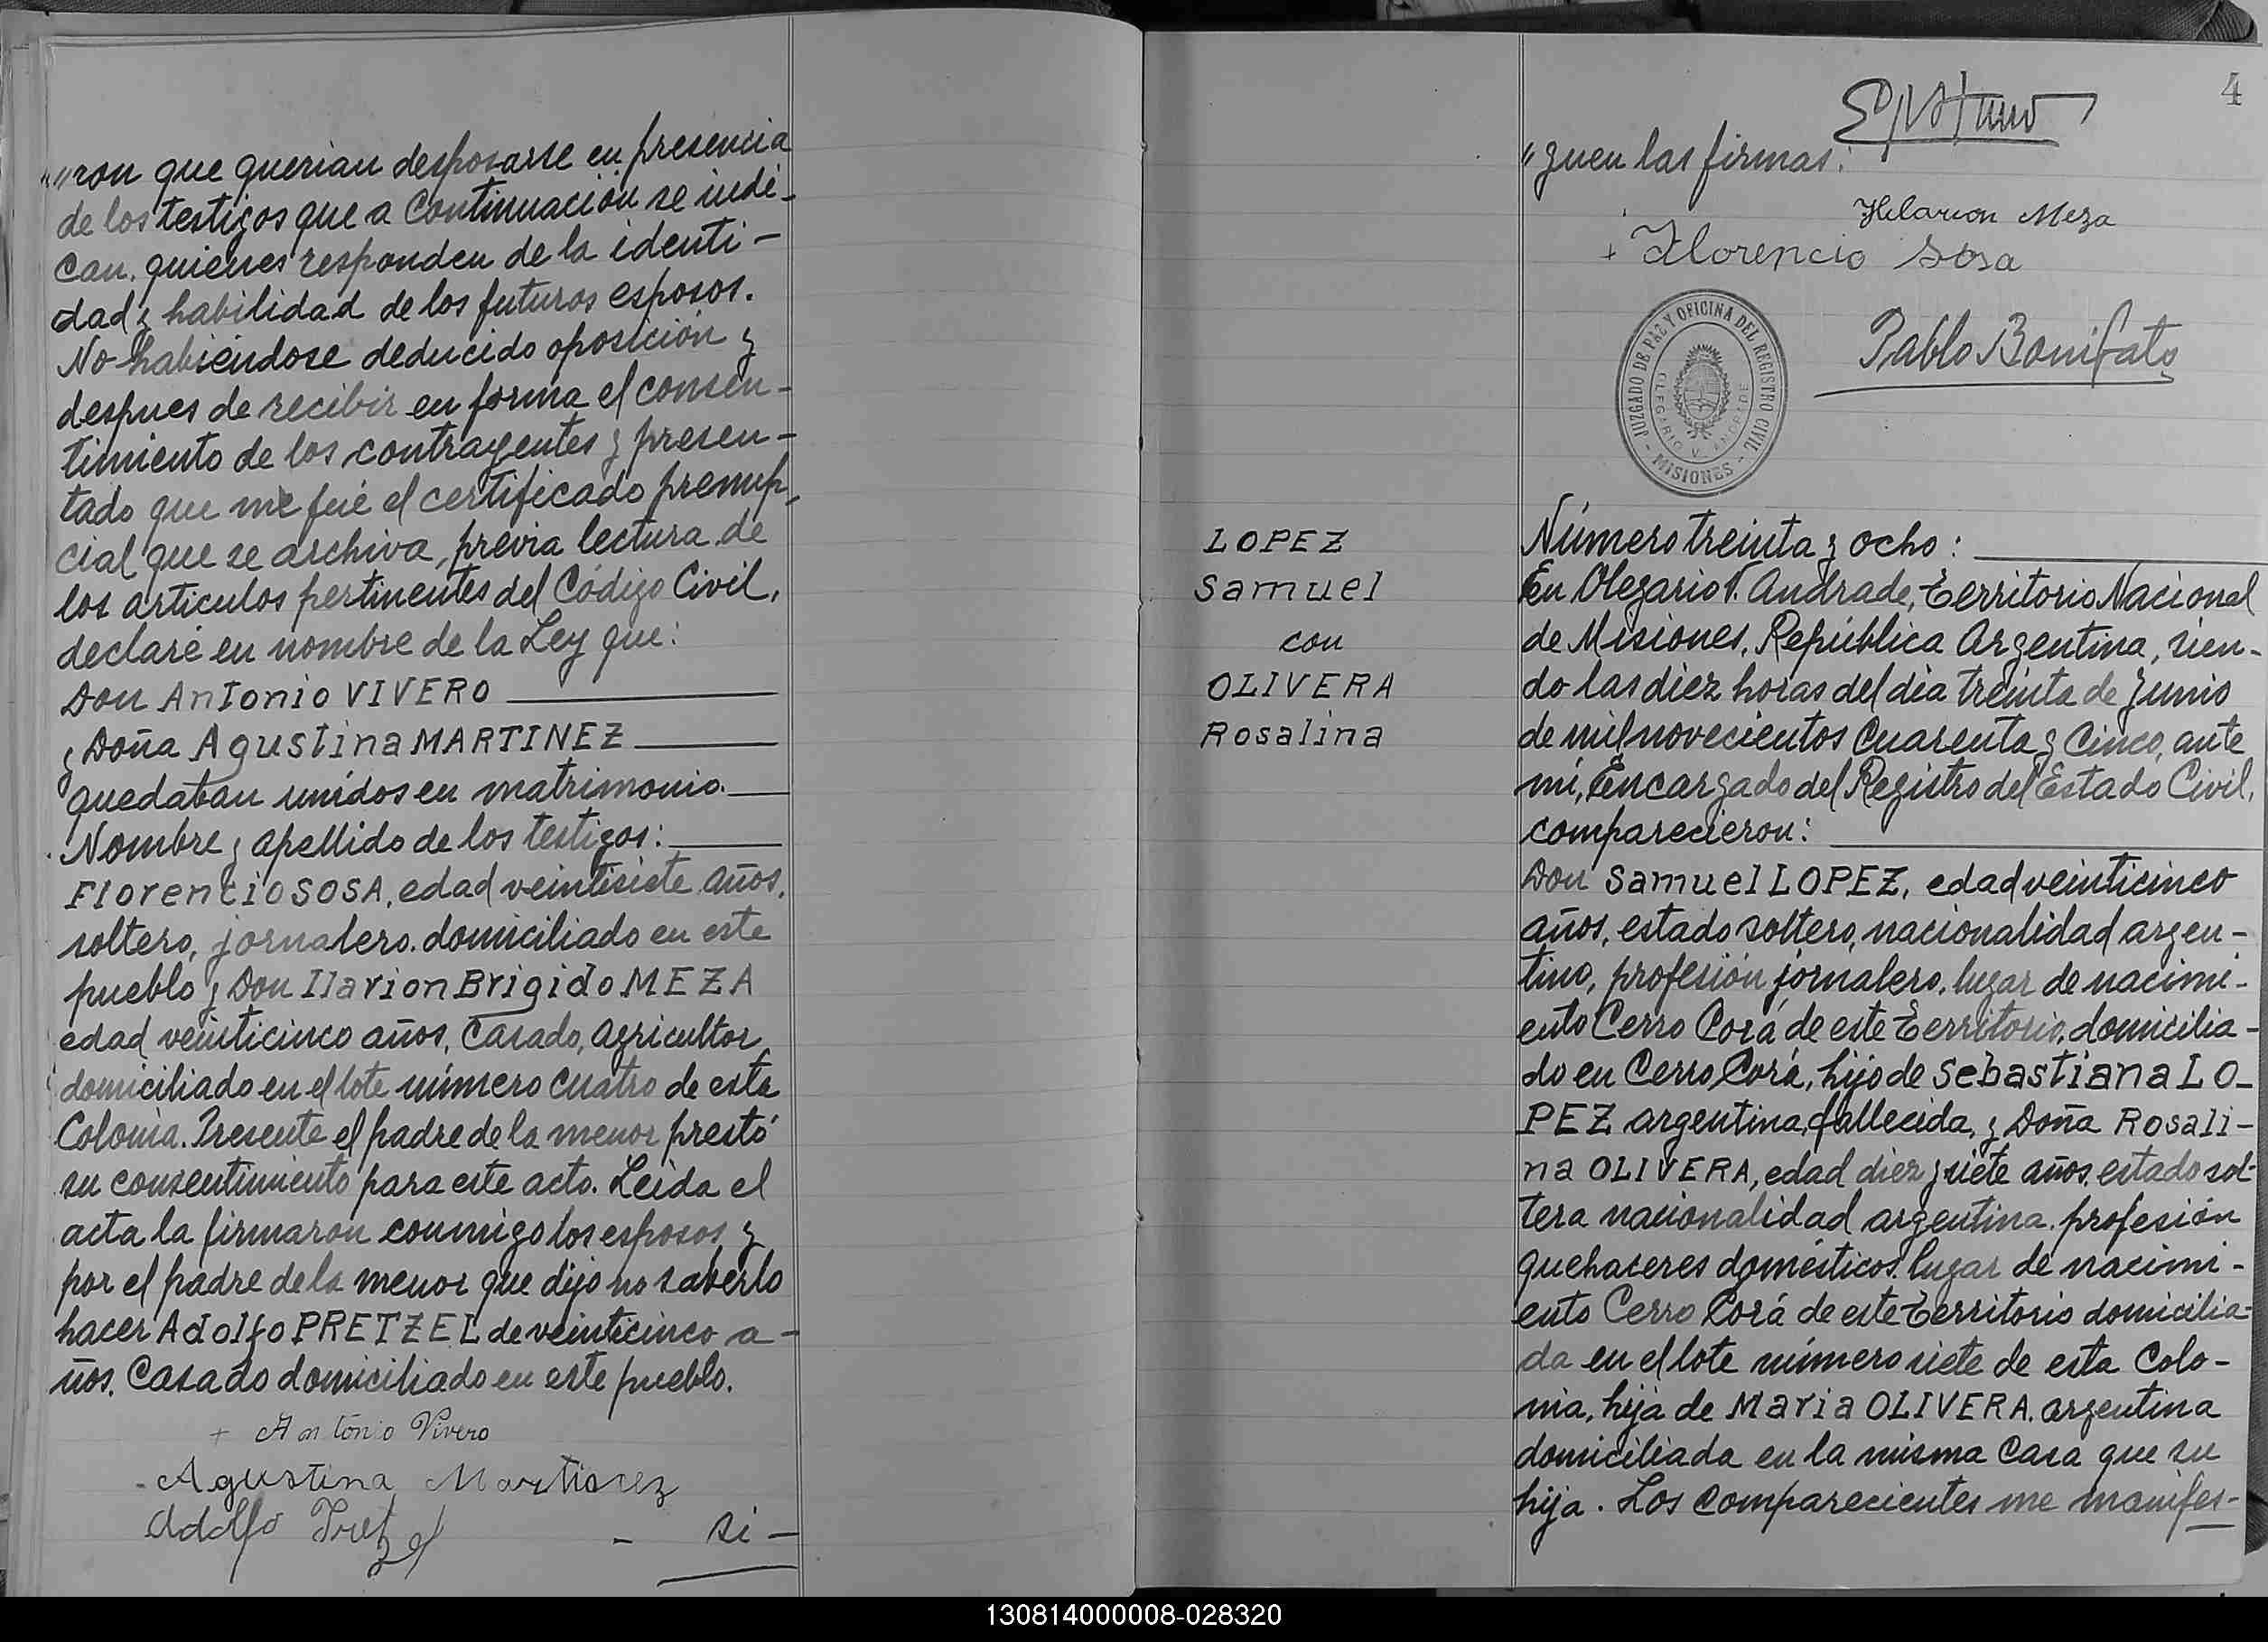 ""ron que querian desposarse en presencia
de los testigos que a continuación se indi-
can. quienes responden de la identi-
dad y habilidad de los futuros esposos.
No habiéndose deducido oposición y
despues de recibir en forma el consen-
timiento de los contrayentes y presen-
tado que me fué el certificado prenup-
cial que se archiva, previa lectura de
los articulos pertinentes del Código Civil,
declaré en nombre de la Ley que:
Don Antonio VIVERO
y Doña Agustina MARTINEZ
quedaban unidos en matrimonio.
Nombre y apellido de los testigos:
Florencio SOSA, edad veintisiete años,
soltero, jornalero. domiciliado en este
pueblo y Don Ilarion Brigido MEZA
edad veinticinco años, casado, agricultor,
domiciliado en el lote número cuatro de esta
Colonia. Presente el padre de la menor prestó
su consentimiento para este acto. Leida el
acta la firmaron conmigo los esposos y
por el padre de la menor que dijo no saberlo
hacer Adolfo PRETZEL de veinticinco a-
ños, casado domiciliado en este pueblo.
+ Antonio Vivero
Agustina Martinez
Adolfo Pretzel
- si-
4
"guen las firmas:
Hilarion Meza
+ Florencio Sosa
JUZGADO DE PAZ Y OFICINA DEL REGISTRO CIVIL
OLEGARIO V. ANDRADE
- MISIONES -
Pablo Bonifato
LOPEZ
Samuel
con
OLIVERA
Rosalina
Número treinta y ocho:
En Olegario V. Andrade, Territorio Nacional
de Misiones, República Argentina, sien-
do las diez horas del dia treinta de Junio
de mil novecientos cuarenta y cinco, ante
mi, Encargado del Registro del Estado Civil,
comparecieron:
Don Samuel LOPEZ, edad veinticinco
años, estado soltero, nacionalidad argen-
tino, profesión jornalero, lugar de nacimi-
ento Cerro Corá de este Territorio, domicilia-
do en Cerro Corá, hijo de Sebastiana LO-
PEZ argentina, fallecida, y Doña Rosali-
na OLIVERA, edad diez y siete años, estado sol-
tera nacionalidad argentina. profesión
quehaceres domésticos. lugar de nacimi-
ento Cerro Corá de este Territorio domicilia-
da en el lote número siete de esta Colo-
nia, hija de Maria OLIVERA. argentina
domiciliada en la misma casa que su
hija. Los comparecientes me manifes-
130814000008-028320